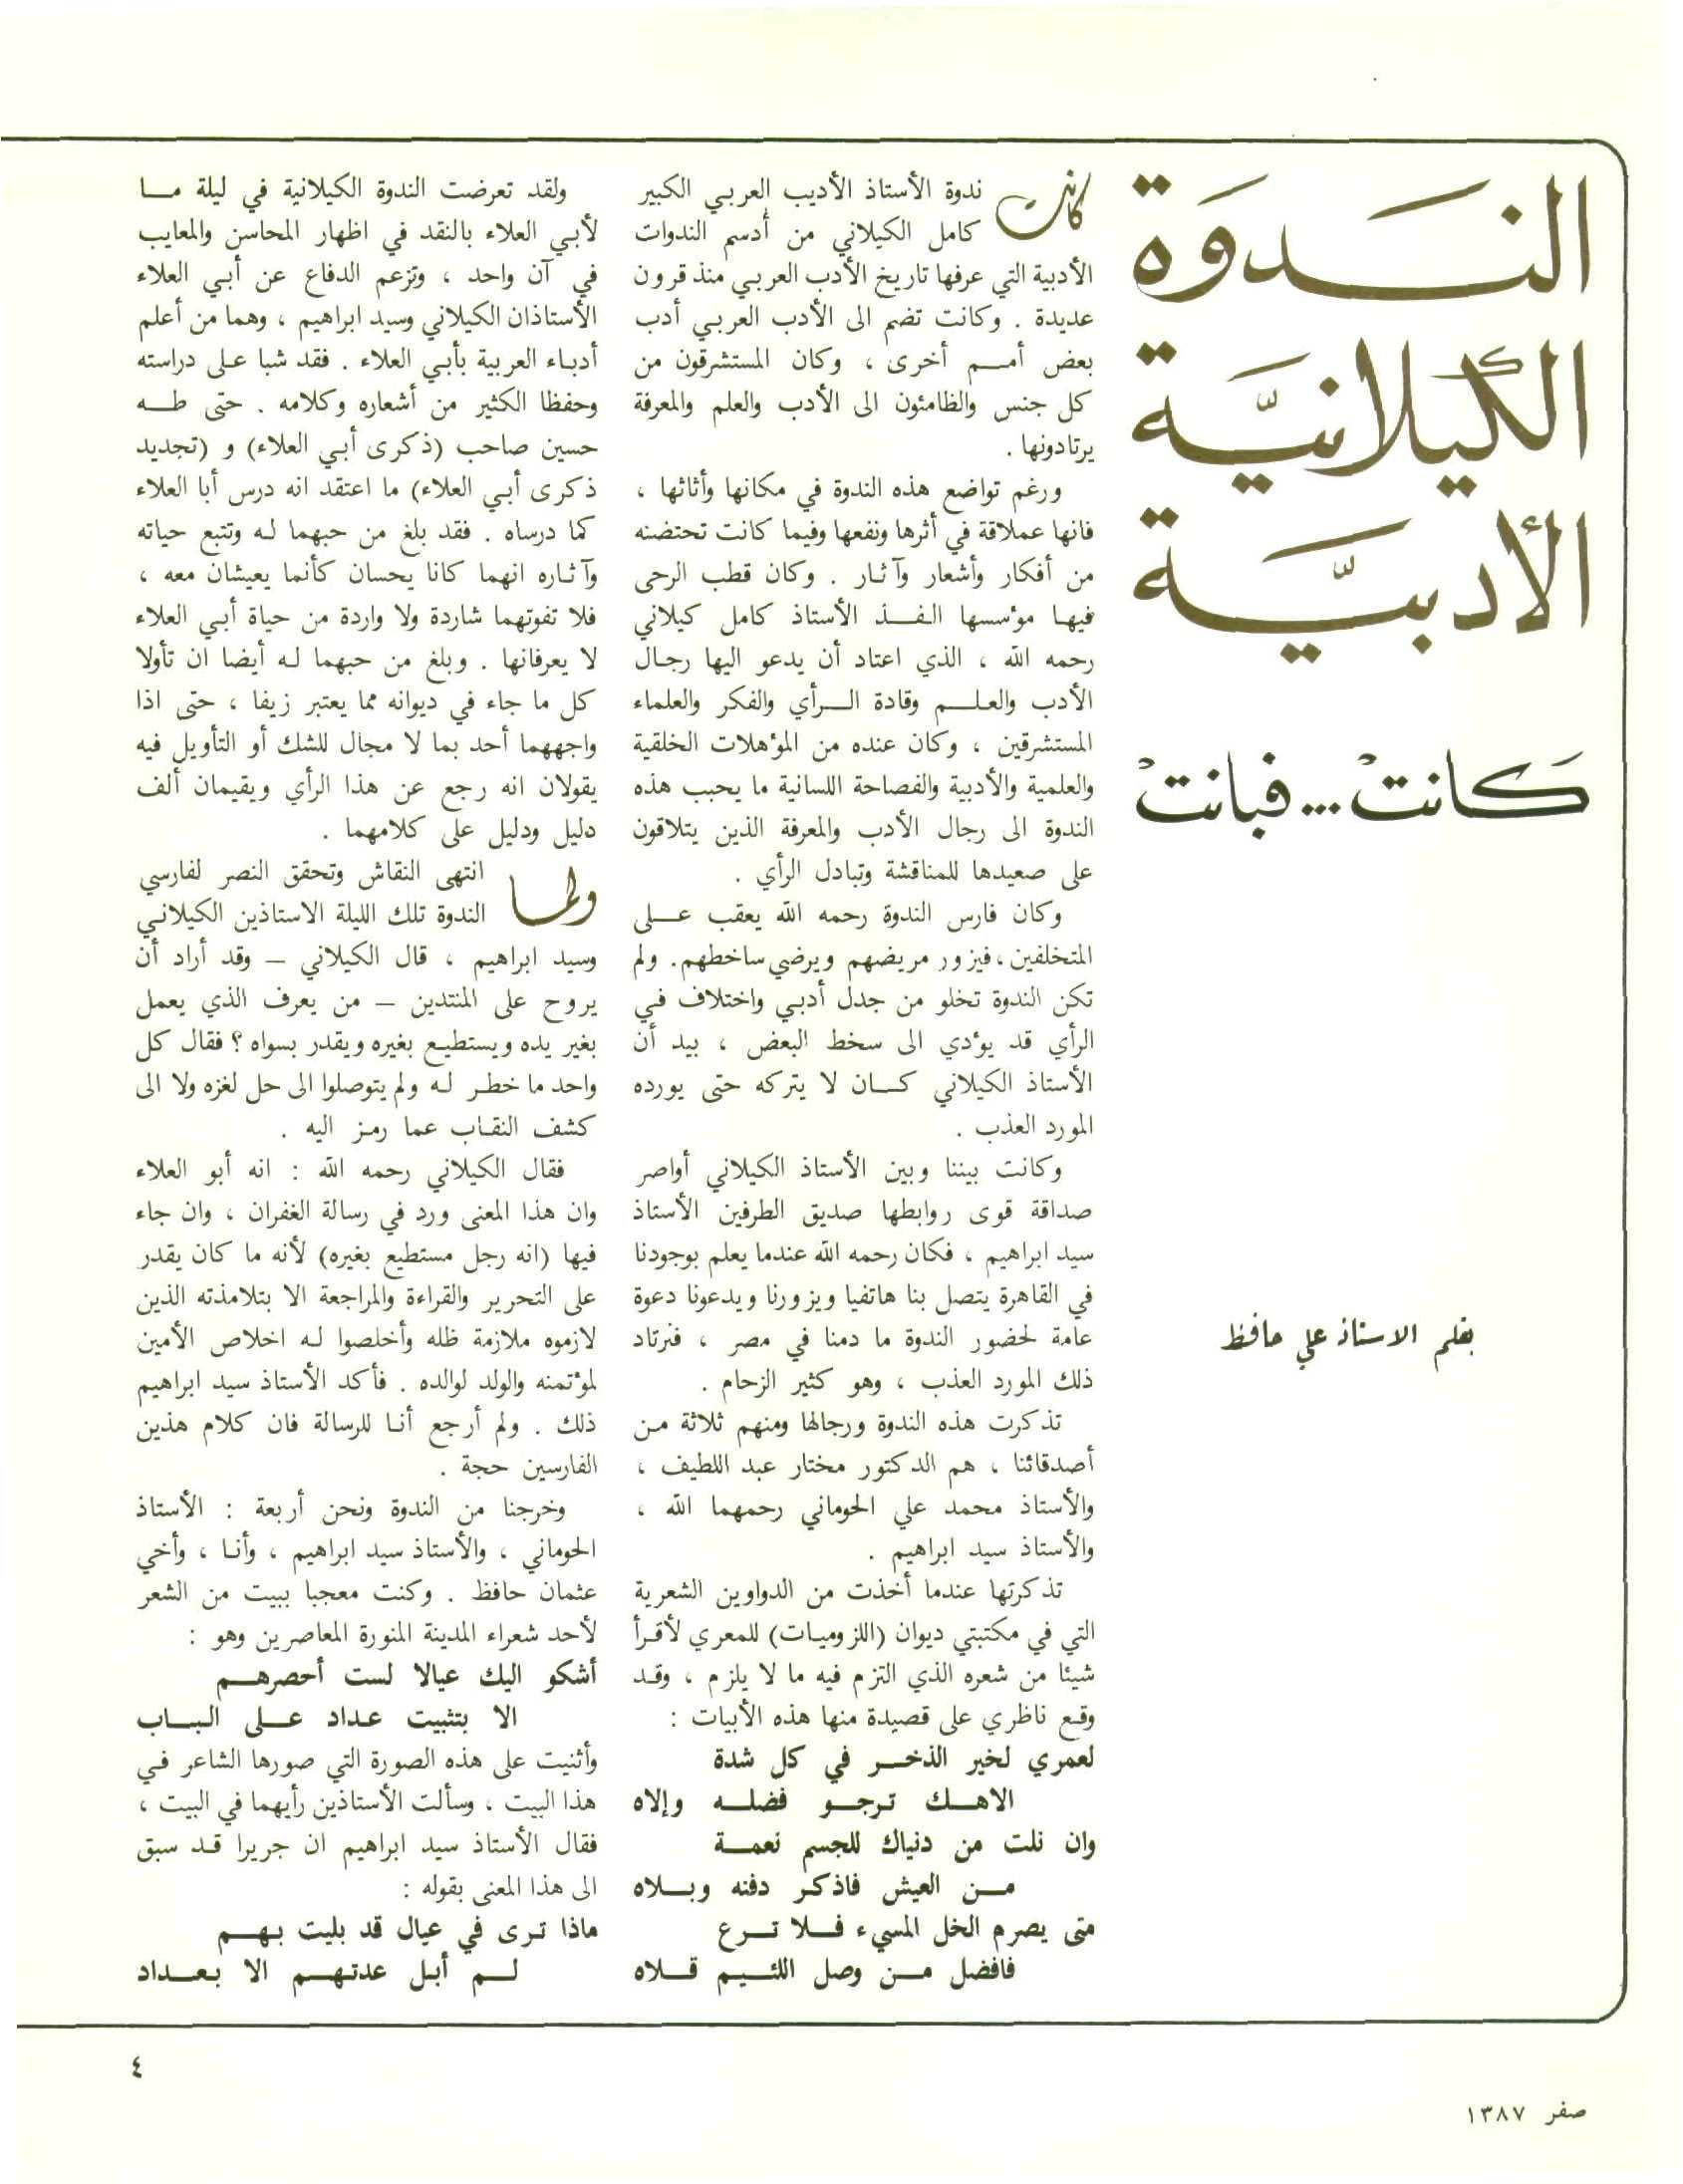 الندوة
الكيلانية
الأدبية
كانت ... فبانت
بقلم الاستاذ علي حافظ
كانت ندوة الأستاذ الأديب العربي الكبير
كامل الكيلاني من أدسم الندوات
الأدبية التي عرفها تاريخ الأدب العربي منذ قرون
عديدة . وكانت تضم الى الأدب العربي أدب
بعض أمم أخرى ، وكان المستشرقون من
كل جنس والظامئون الى الأدب والعلم والمعرفة
يرتادونها .
ورغم تواضع هذه الندوة في مكانها وأثاثها ،
فانها عملاقة في أثرها ونفعها وفيما كانت تحتضنه
من أفكار وأشعار وآثار . وكان قطب الرحى
فيها مؤسسها الفذ الأستاذ كامل كيلاني
رحمه الله ، الذي اعتاد أن يدعو اليها رجال
الأدب والعلم وقادة الرأي والفكر والعلماء
المستشرقين ، وكان عنده من المؤهلات الخلقية
والعلمية والأدبية والفصاحة اللسانية ما يحبب هذه
الندوة الى رجال الأدب والمعرفة الذين يتلاقون
على صعيدها للمناقشة وتبادل الرأي .
وكان فارس الندوة رحمه الله يعقب على
المتخلفين ، فيزور مريضهم ويرضي ساخطهم. ولم
تكن الندوة تخلو من جدل أدبي واختلاف في
الرأي قد يؤدي الى سخط البعض ، بيد أن
الأستاذ الكيلاني كان لا يتركه حتى يورده
المورد العذب .
وكانت بيننا وبين الأستاذ الكيلاني أواصر
صداقة قوى روابطها صديق الطرفين الأستاذ
سيد ابراهيم ، فكان رحمه الله عندما يعلم بوجودنا
في القاهرة يتصل بنا هاتفيا ويزورنا ويدعونا دعوة
عامة لحضور الندوة ما دمنا في مصر ، فنرتاد
ذلك المورد العذب ، وهو كثير الزحام .
تذكرت هذه الندوة ورجالها ومنهم ثلاثة من
أصدقائنا ، هم الدكتور مختار عبد اللطيف ،
والأستاذ محمد علي الحوماني رحمهما الله ،
والأستاذ سيد ابراهيم .
تذكرتها عندما أخذت من الدواوين الشعرية
التي في مكتبتي ديوان (اللزوميات) للمعري لأقرأ
شيئا من شعره الذي التزم فيه ما لا يلزم ، وقد
وقع ناظري على قصيدة منها هذه الأبيات :
لعمري لخير الذخر في كل شدة
الاهك ترجو فضله وإلاه
وان نلت من دنياك للجسم نعمة
من العيش فاذكر دفنه وبلاه
متى يصرم الخل المسيء فلا ترع
فافضل من وصل اللئيم قلاه
ولقد تعرضت الندوة الكيلانية في ليلة ما
لأبي العلاء بالنقد في اظهار المحاسن والمعايب
في آن واحد ، وتزعم الدفاع عن أبي العلاء
الأستاذان الكيلاني وسيد ابراهيم ، وهما من أعلم
أدباء العربية بأبي العلاء . فقد شبا على دراسته
وحفظا الكثير من أشعاره وكلامه . حتى طه
حسين صاحب (ذكرى أبي العلاء) و (تجديد
ذكرى أبي العلاء) ما اعتقد انه درس أبا العلاء
كما درساه . فقد بلغ من حبهما له وتتبع حياته
وآثاره انهما كانا يحسان كأنما يعيشان معه ،
فلا تفوتهما شاردة ولا واردة من حياة أبي العلاء
لا يعرفانها . وبلغ من حبهما له أيضا ان تأولا
كل ما جاء في ديوانه مما يعتبر زيفا ، حتى اذا
واجههما أحد بما لا مجال للشك أو التأويل فيه
يقولان انه رجع عن هذا الرأي ويقيمان ألف
دليل ودليل على كلامهما .
ولما انتهى النقاش وتحقق النصر لفارسي
الندوة تلك الليلة الاستاذين الكيلاني
وسيد ابراهيم ، قال الكيلاني – وقد أراد أن
يروح على المنتدين – من يعرف الذي يعمل
بغير يده ويستطيع بغيره ويقدر بسواه ؟ فقال كل
واحد ما خطر له ولم يتوصلوا الى حل لغزه ولا الى
كشف النقاب عما رمز اليه .
فقال الكيلاني رحمه الله : انه أبو العلاء
وان هذا المعنى ورد في رسالة الغفران ، وان جاء
فيها (انه رجل مستطيع بغيره) لأنه ما كان يقدر
على التحرير والقراءة والمراجعة الا بتلامذته الذين
لازموه ملازمة ظله وأخلصوا له اخلاص الأمين
لمؤتمنه والولد لوالده . فأكد الأستاذ سيد ابراهيم
ذلك . ولم أرجع أنا للرسالة فان كلام هذين
الفارسين حجة .
وخرجنا من الندوة ونحن أربعة : الأستاذ
الحوماني ، والأستاذ سيد ابراهيم ، وأنا ، وأخي
عثمان حافظ . وكنت معجبا ببيت من الشعر
لأحد شعراء المدينة المنورة المعاصرين وهو :
أشكو اليك عيالا لست أحصرهم
الا بتثبيت عداد على الباب
وأثنيت على هذه الصورة التي صورها الشاعر في
هذا البيت ، وسألت الأستاذين رأيهما في البيت ،
فقال الأستاذ سيد ابراهيم ان جريرا قد سبق
الى هذا المعنى بقوله :
ماذا ترى في عيال قد بليت بهم
لم أبل عدتهم الا بعداد
٤
صفر ١٣٨٧